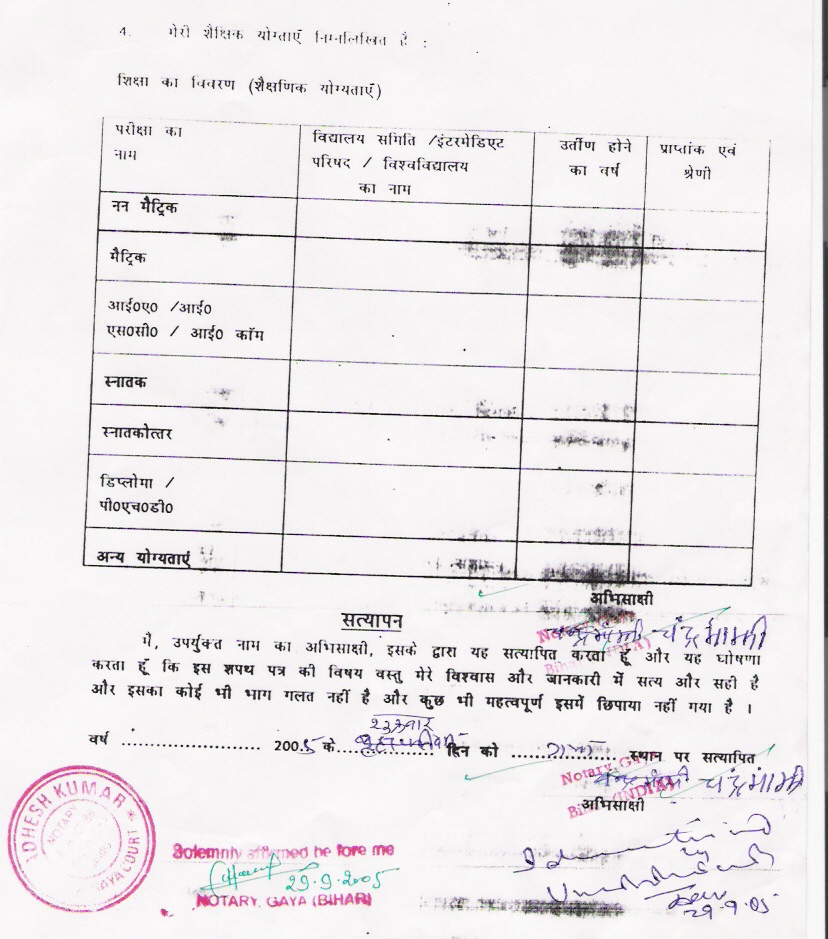 4. मेरी शैक्षिक योग्ताएँ निम्नलिखित है :
शिक्षा का विवरण (शैक्षणिक योग्यताएँ)
परीक्षा का
नाम
विद्यालय समिति /इंटरमेडिएट
परिषद / विश्वविद्यालय
का नाम
उर्तीण होने
का वर्ष
प्राप्तांक एवं
श्रेणी
नन मैट्रिक
मैट्रिक
आई०ए० /आई०
एस०सी० / आई० कॉम
स्नातक
स्नातकोत्तर
डिप्लोमा /
पी०एच०डी०
अन्य योग्यताएँ
अभिसाक्षी
सत्यापन
चंद्रमामी
मै, उपर्युक्त नाम का अभिसाक्षी, इसके द्वारा यह सत्यापित करता हूँ और यह घोषणा
करता हूँ कि इस शपथ पत्र की विषय वस्तु मेरे विश्वास और जानकारी में सत्य और सही है
और इसका कोई भी भाग गलत नहीं है और कुछ भी महत्वपूर्ण इसमें छिपाया नहीं गया है ।
वर्ष ...................... 2005 के............... दिन को ................. स्थान पर सत्यापित
Notary, Gaya
Bihar (INDIA)
अभिसाक्षी
IDHESH KUMAR *
NOTARY
GAYA COURT
Solemnly affirmed before me
29.9.2005
NOTARY. GAYA (BIHAR)
29.9.05